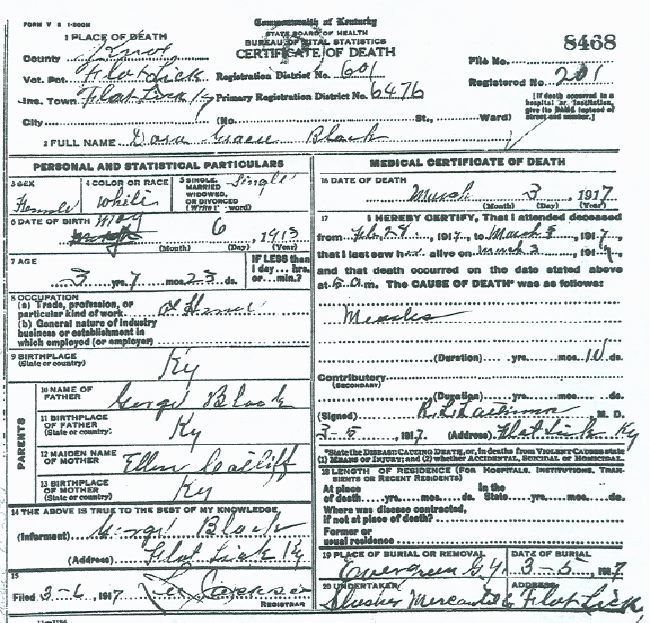 FORM V S 1-500M
Commonwealth of Kentucky
STATE BOARD OF HEALTH
BUREAU OF VITAL STATISTICS
CERTIFICATE OF DEATH
8468
1 PLACE OF DEATH
County Knox
Vot. Pct. Flat Lick Registration District No. 601
Inc. Town Flat Lick Ky Primary Registration District No. 6476
File No.
Registered No. 201
City (No. St., Ward)
[If death occurred in a hospital or institution, give its NAME instead of street and number.]
2 FULL NAME Dora Gracie Black
PERSONAL AND STATISTICAL PARTICULARS
3 SEX Female
4 COLOR OR RACE White
5 SINGLE, MARRIED, WIDOWED, OR DIVORCED (Write word) Single
6 DATE OF BIRTH May 6 1913
(Month) (Day) (Year)
7 AGE
3 yrs. 7 mos. 23 ds.
IF LESS than 1 day... hrs. or... min.?
8 OCCUPATION
(a) Trade, profession, or particular kind of work at Home
(b) General nature of industry business or establishment in which employed (or employer)
9 BIRTHPLACE
(State or country) Ky
PARENTS
10 NAME OF FATHER George Black
11 BIRTHPLACE OF FATHER
(State or country) Ky
12 MAIDEN NAME OF MOTHER Ellen
13 BIRTHPLACE OF MOTHER
(State or country) Ky
14 THE ABOVE IS TRUE TO THE BEST OF MY KNOWLEDGE
(Informant) George Black
(Address) Flat Lick Ky
15
Filed 3-6, 1917
REGISTRAR
MEDICAL CERTIFICATE OF DEATH
16 DATE OF DEATH
March 3, 1917
(Month) (Day) (Year)
17 I HEREBY CERTIFY, That I attended deceased
from Feb. 28, 1917, to March 3, 1917,
that I last saw her alive on March 3, 1917,
and that death occurred on the date stated above
at 5 a.m. The CAUSE OF DEATH* was as follows:
Measles
(Duration) yrs. mos. 10 ds.
Contributory
(SECONDARY)
(Duration) yrs. mos. ds.
(Signed) M. D.
3-5, 1917 (Address) Flat Lick Ky
*State the DISEASE CAUSING DEATH, or, in deaths from VIOLENT CAUSES state (1) MEANS OF INJURY; and (2) whether ACCIDENTAL, SUICIDAL or HOMICIDAL.
18 LENGTH OF RESIDENCE (FOR HOSPITALS, INSTITUTIONS, TRANSIENTS OR RECENT RESIDENTS)
At place of death yrs. mos. ds. In the State yrs. mos. ds.
Where was disease contracted, if not at place of death?
Former or usual residence
19 PLACE OF BURIAL OR REMOVAL Evergreen G.Y.
DATE OF BURIAL 3-5, 1917
20 UNDERTAKER Slusher
ADDRESS Flat Lick